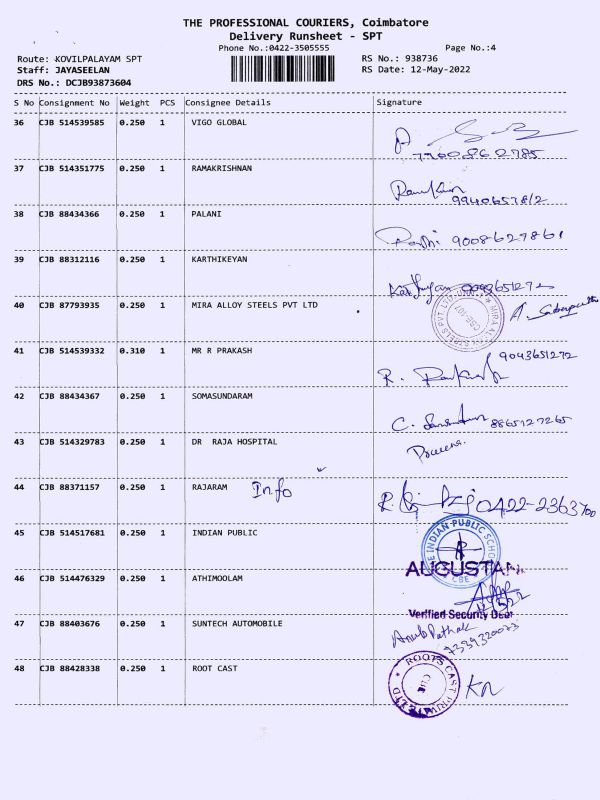 THE PROFESSIONAL COURIERS, Coimbatore
Delivery Runsheet - SPT
Phone No.:0422-3505555
Page No.:4
Route: KOVILPALAYAM SPT
RS No.: 938736
Staff: JAYASEELAN
RS Date: 12-May-2022
DRS No.: DCJB93873604
S No Consignment No Weight PCS Consignee Details Signature
36 CJB 514539585 0.250 1 VIGO GLOBAL
37 CJB 514351775 0.250 1 RAMAKRISHNAN
9940657812
38 CJB 88434366 0.250 1 PALANI
9008627861
39 CJB 88312116 0.250 1 KARTHIKEYAN
40 CJB 87793935 0.250 1 MIRA ALLOY STEELS PVT LTD
41 CJB 514539332 0.310 1 MR R PRAKASH
9043651272
42 CJB 88434367 0.250 1 SOMASUNDARAM
8865127265
43 CJB 514329783 0.250 1 DR RAJA HOSPITAL
44 CJB 88371157 0.250 1 RAJARAM Info
0422-2363700
45 CJB 514517681 0.250 1 INDIAN PUBLIC
INDIAN PUBLIC
CBE
46 CJB 514476329 0.250 1 ATHIMOOLAM
Verified Security
47 CJB 88403676 0.250 1 SUNTECH AUTOMOBILE
48 CJB 88428338 0.250 1 ROOT CAST
ROOTS CAST PRIVATE LTD